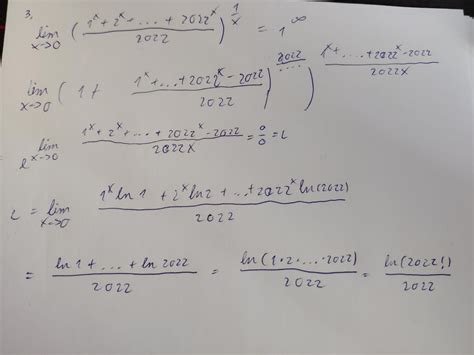 3,
lim x→0 ( (1^x + 2^x + ... + 2022^x) / 2022 )^(1/x) = 1^∞
lim x→0 ( 1 + (1^x + ... + 2022^x - 2022) / 2022 )^(2022/....) )^((1^x + ... + 2022^x - 2022) / 2022x)
e^(lim x→0 (1^x + 2^x + ... + 2022^x - 2022) / 2022x) = 0/0 = L
L = lim x→0 (1^x ln 1 + 2^x ln 2 + ... + 2022^x ln(2022)) / 2022
= (ln 1 + ... + ln 2022) / 2022 = (ln(1·2·...·2022)) / 2022 = ln(2022!) / 2022